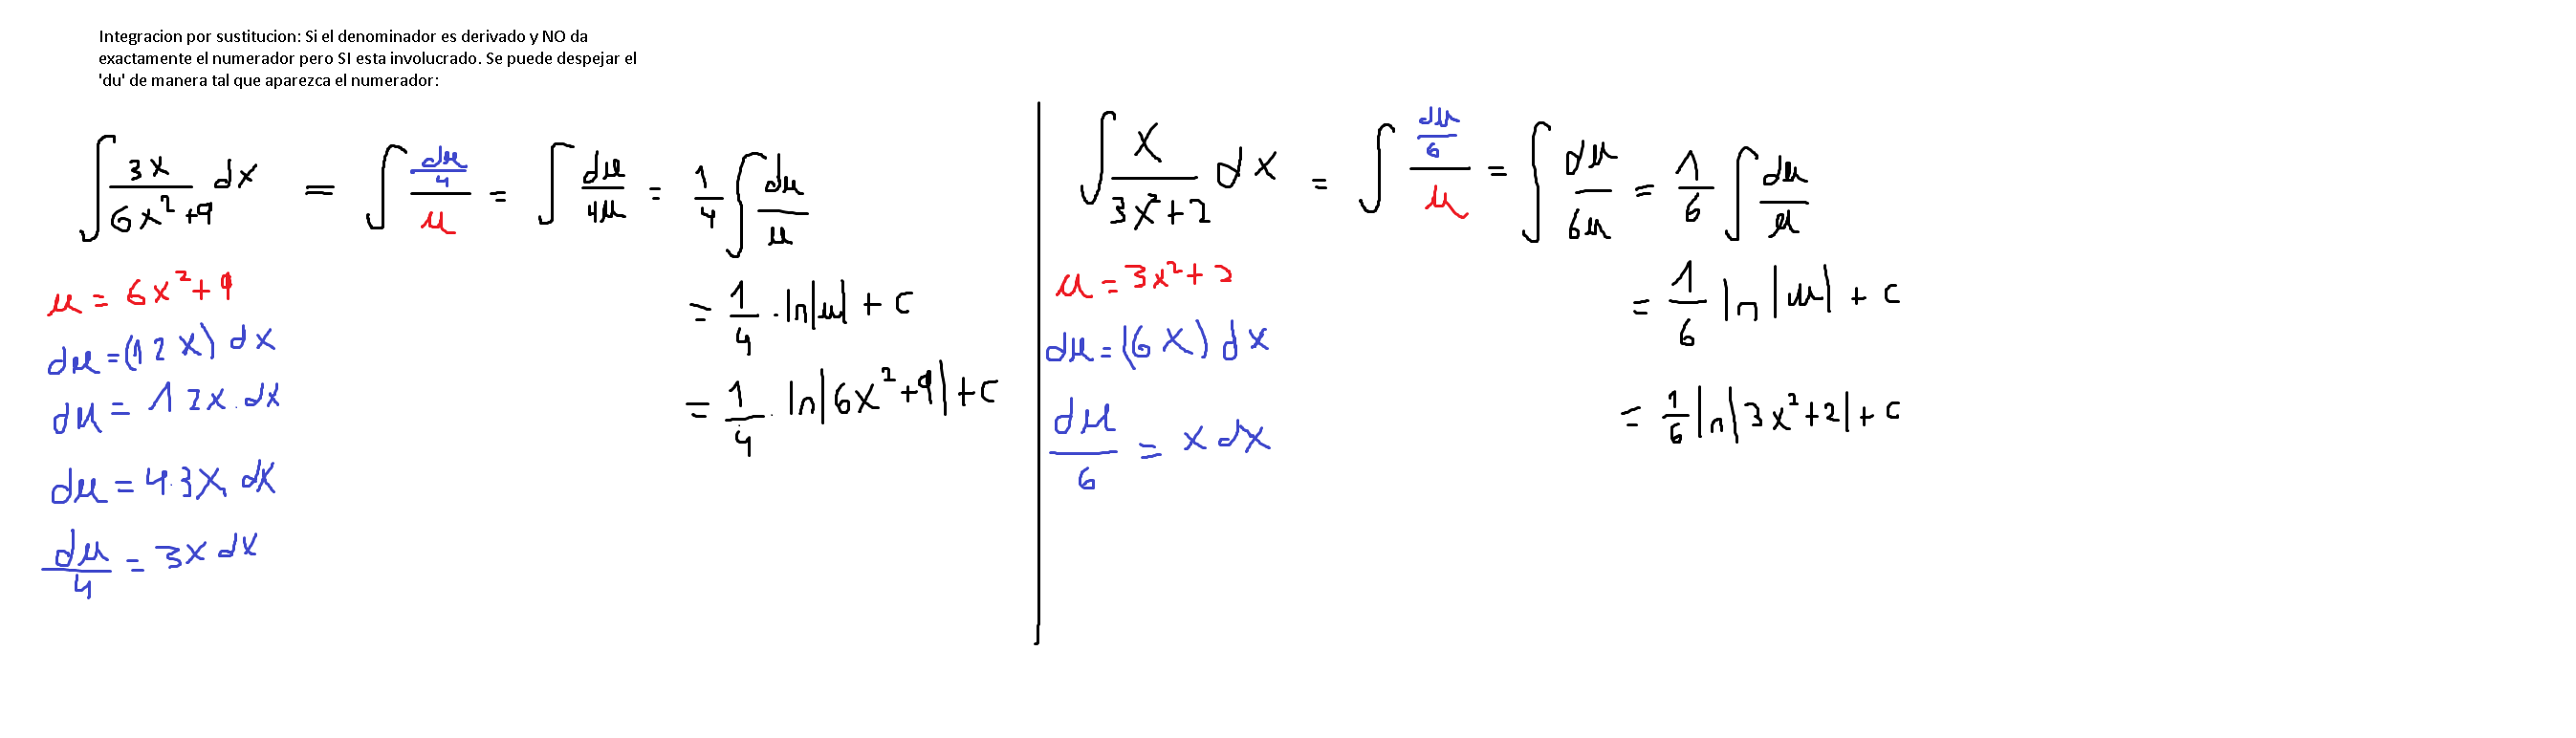 Integracion por sustitucion: Si el denominador es derivado y NO da
exactamente el numerador pero SI esta involucrado. Se puede despejar el
'du' de manera tal que aparezca el numerador:
∫ 3x/(6x²+9) dx = ∫ (du/4)/u = ∫ du/4u = 1/4 ∫ du/u
u = 6x²+9
du = (12x) dx
du = 12x.dx
du = 4.3x.dx
du/4 = 3x dx
= 1/4 . ln|u| + c
= 1/4 . ln|6x²+9| + c
∫ x/(3x²+2) dx = ∫ (du/6)/u = ∫ du/6u = 1/6 ∫ du/u
u = 3x²+2
du = (6x) dx
du/6 = x dx
= 1/6 ln|u| + c
= 1/6 ln|3x²+2| + c